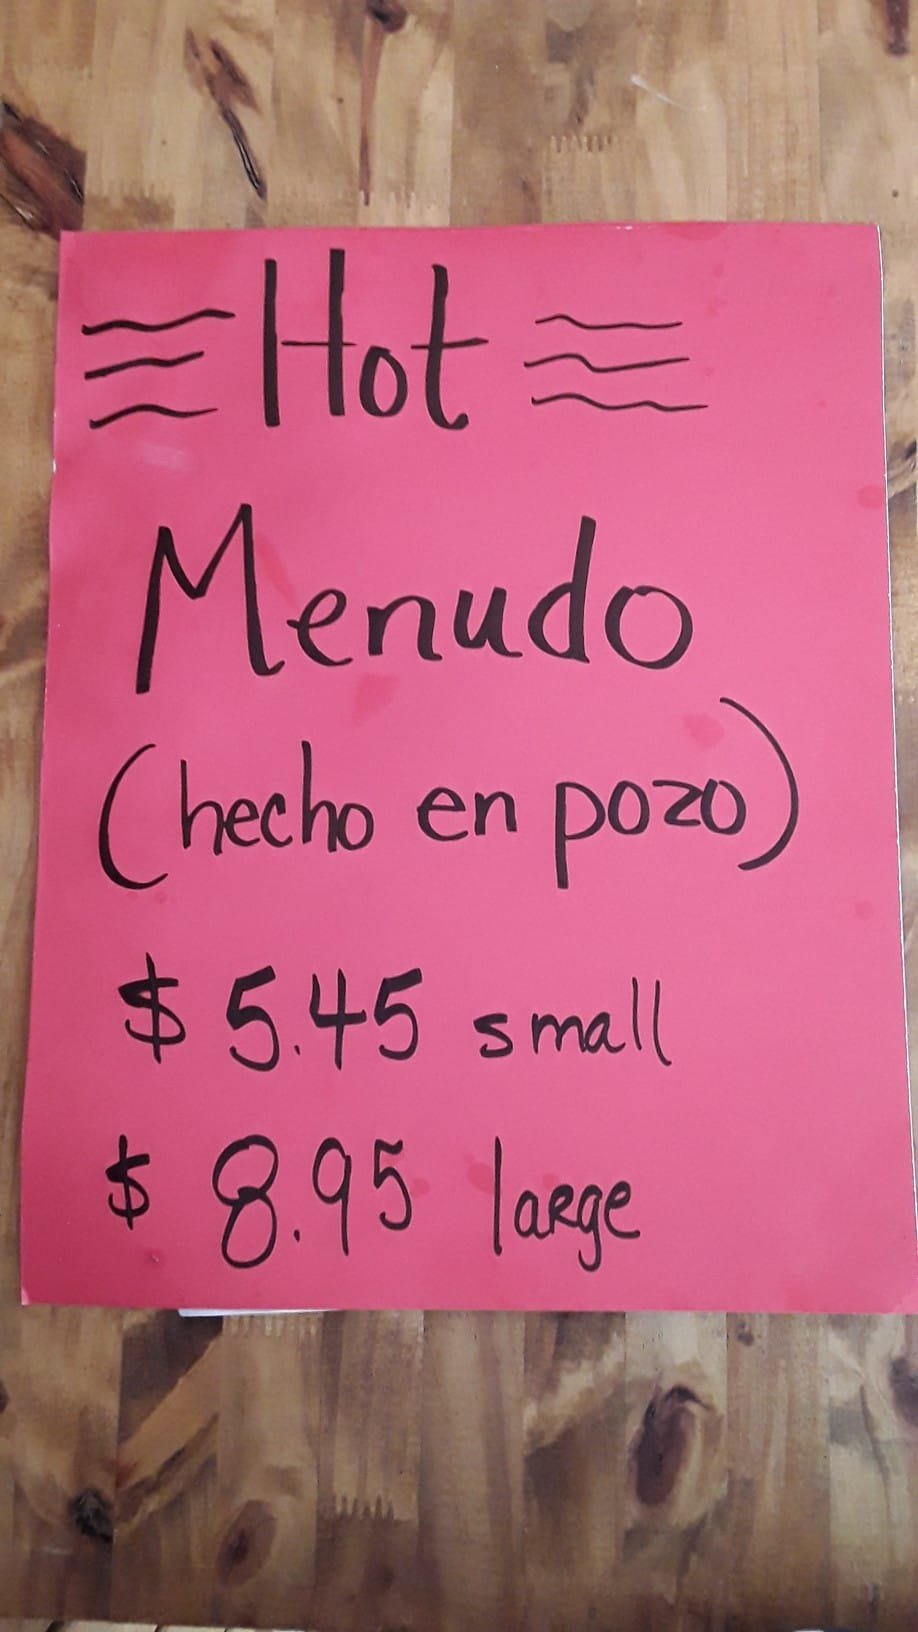 Hot
Menudo
(hecho en pozo)
$ 5.45 small
$ 8.95 large